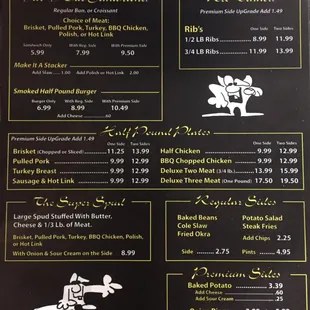 Regular Bun, or Croissant
Choice of Meat:
Brisket, Pulled Pork, Turkey, BBQ Chicken,
Polish, or Hot Link
Sandwich Only With Reg. Side With Premium Side
5.99 7.99 9.50
Make It A Stacker
Add Slaw.......1.00 Add Polish or Hot Link.......2.00
Smoked Half Pound Burger
Burger Only With Reg. Side With Premium Side
6.99 8.99 10.49
Add Cheese......60
Premium Side UpGrade Add 1.49
Rib's One Side Two Sides
1/2 LB Ribs 8.99 11.99
3/4 LB Ribs 11.99 13.99
Half Pound Plates
Premium Side UpGrade Add 1.49
One Side Two Sides
Brisket (Chopped or Sliced) 11.25 13.99
Pulled Pork 9.99 12.99
Turkey Breast 9.99 12.99
Sausage & Hot Link 9.99 12.99
One Side Two Sides
Half Chicken 9.99 12.99
BBQ Chopped Chicken 9.99 12.99
Deluxe Two Meat (3/4 lb.) 13.99 15.99
Deluxe Three Meat (One Pound) 17.50 19.50
The Super Spud
Large Spud Stuffed With Butter,
Cheese & 1/3 Lb. of Meat.
Brisket, Pulled Pork, Turkey, BBQ Chicken, Polish,
or Hot Link
With Onion & Sour Cream on the Side 8.99
Regular Sides
Baked Beans Potato Salad
Cole Slaw Steak Fries
Fried Okra Add Chips 2.25
Side 2.75 Pints 4.95
Premium Sides
Baked Potato 3.39
Add Cheese .60
Add Sour Cream .25